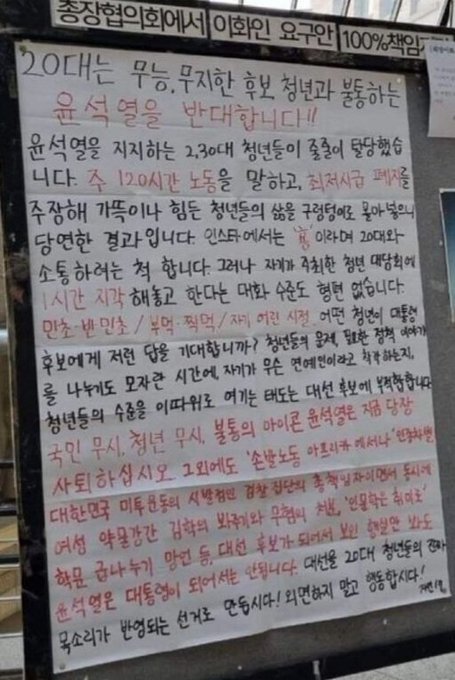 총장협의회에서 이화인 요구안 100%책임
20대는 무능, 무지한 후보 청년과 불통하는
윤석열을 반대합니다!!
윤석열을 지지하는 2,30대 청년들이 줄줄이 탈당했습
니다. 주 120시간 노동을 말하고, 최저시급 폐지를
주장해 가뜩이나 힘든 청년들의 삶을 구렁텅이로 몰아 넣으니
당연한 결과입니다. 인스타에서는 이라며 20대와
소통하려는 척 합니다. 그러나 자기가 주최한 청년 대담회에
1시간 지각 해놓고 한다는 대화 수준도 형편 없습니다.
민초·반민초 / 부먹·찍먹 / 자기 어린 시절. 어떤 청년이 대통령
후보에게 저런 답을 기대합니까? 청년들의 문제, 필요한 정책 이야기
를 나누기도 모자란 시간에, 자기가 무슨 연예인이라고 착각하는지,
청년들의 수준을 이따위로 여기는 태도는 대선 후보에 부적합합니다
국민 무시, 청년 무시, 불통의 아이콘 윤석열은 지금 당장
사퇴하십시오. 그외에도 '손발노동 아프리카에서나' 인종차별
대한민국 미투운동의 시발점인 검찰 집단의 총책임자이면서 동시에
여성 약물강간 김학의 봐주기와 무혐의 처분, '인문학은 취미로'
학문 급나누기 망언 등, 대선 후보가 되어서 보인 행실만 봐도
윤석열은 대통령이 되어서는 안됩니다. 대선을 20대 청년들의 진짜
목소리가 반영되는 선거로 만듭시다! 외면하지 말고 행동합시다!